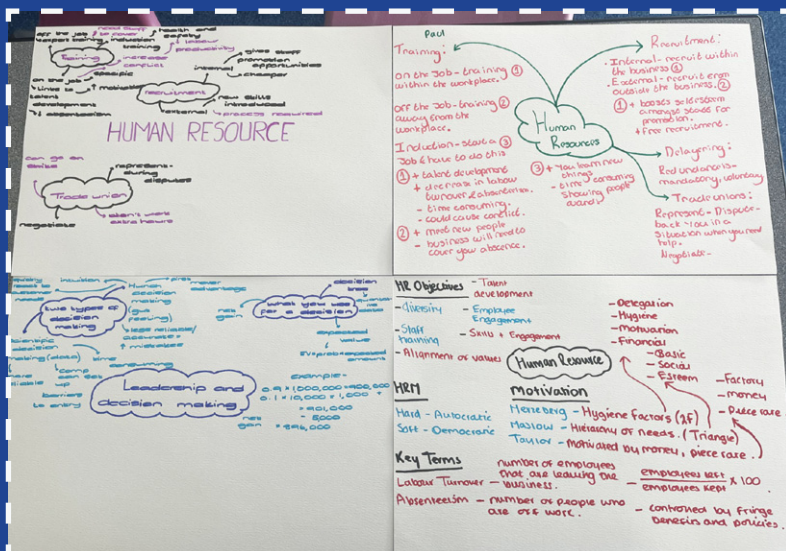 need staff
to cover
health and
safety
off the job
expert training
induction
training
↓ labour
productivity
Training
increase
conflict
on the job
specific
linked to
talent
development
↓ absenteeism
↑ motivation
internal
gives staff
promotion
opportunities
cheaper
recruitment
new skills
introduced
external
process required
HUMAN RESOURCE
can go on
strike
represent
during
disputes
Trade union
negotiate
don't work
extra hours
Paul
Training:
on the Job - training ①
within the workplace.
off the Job - training ②
away from the
workplace.
Induction - start a ③
Job & have to do this
① + talent development
+ decrease in labour
turnover & absenteeism.
- time consuming.
- could cause conflict.
② + meet new people
- business will need to
cover your absence.
Human
Resources
③ + you learn new
things
- time consuming
showing people
around
Recruitment:
. Internal - recruit within
the business ①
. External - recruit from
outside the business. ②
① + boosts self esteem
amongst staff for
promotion.
+ Free recruitment.
Delayering:
Redundancies -
mandatory, voluntary
Trade unions:
Represent - Dispute -
back you in a
situation when you need
help.
Negotiate -
customer
needs
two types of
decision
making
Human
decision
making
(gut
feeling)
first
mover
advantage
less reliable/
accurate
↑ mistakes
intuition
scientific
decision
making (data)
time
consuming
comp can get
up
barriers
to entry
what you use
for a decision
decision
tree
net
gain
expected
value
Leadership and
decision making
Example -
0.9 x 1,000,000 = 900,000
0.1 x 10,000 = 1,000 +
= 901,000
- 5,000
net
gain = 896,000
HR Objectives
- Talent
development
- diversity
- Employee
Engagement
- Staff
training
- Skills + Engagement
- Alignment of values
Human Resource
- Delegation
- Hygiene
- Motivation
- Financial
- Basic
- Social
- Esteem
- Factory
- money
- piece rate
HRM
Hard - Autocratic
Soft - Democratic
Motivation
Herzberg - Hygiene factors (2F)
Maslow - Hierarchy of needs. (Triangle)
Taylor - motivated by money, piece rate.
Key Terms
Labour Turnover - number of employees
that are leaving the
business.
- employees left
employees kept x 100
Absenteeism - number of people who
are off work.
- controlled by fringe
benefits and policies.